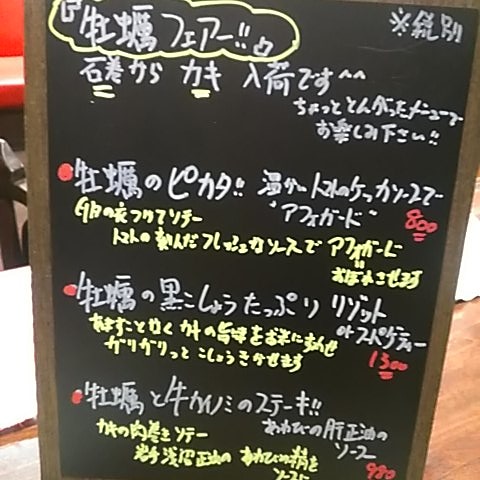 『牡蠣フェアー!!』
※税別
石巻から カキ 入荷です^^
ちょっととんがったメニューで
お楽しみ下さい!!
牡蠣のピカタ!! 温かいトマトのケッカソースで
"アフォガード" 800
卵の衣つけてソテー
トマトの刻んだフレッシュなソースで アフォガード
おぼれさせます
牡蠣の黒こしょうたっぷり リゾット
or スパゲティー
あますことなく カキの旨味をお米に
ガリガリっと こしょうきかせます 1300
牡蠣と牛カイノミのステーキ!!
あわびの肝正油の
ソース 980
カキの肉巻をソテー
岩手 浅沼正油の あわびの精を